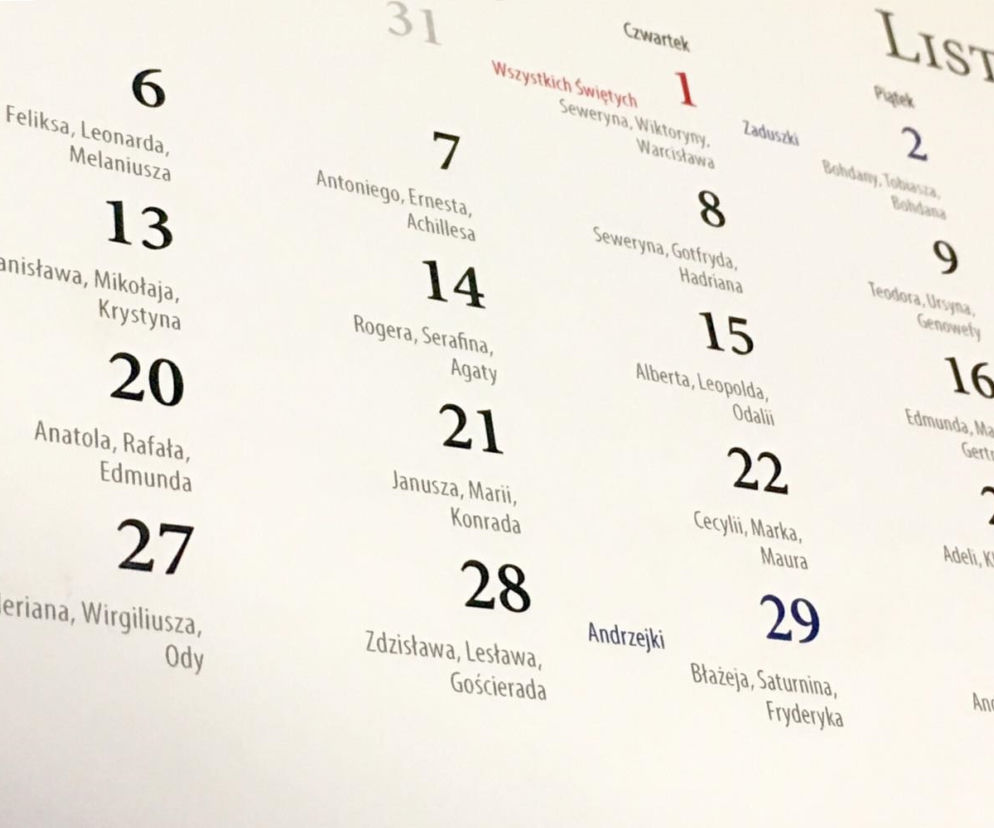 LIST
31
Czwartek
Piątek
6
Feliksa, Leonarda,
Melaniusza
7
Antoniego, Ernesta,
Achillesa
Wszystkich Świętych 1
Seweryna, Wiktoryny,
Warcisława
Zaduszki 2
Bohdany, Tobiasza,
Bohdana
13
anisława, Mikołaja,
Krystyna
14
Rogera, Serafina,
Agaty
8
Seweryna, Gotfryda,
Hadriana
9
Teodora, Ursyna,
Genowefy
20
Anatola, Rafała,
Edmunda
21
Janusza, Marii,
Konrada
15
Alberta, Leopolda,
Odalii
16
Edmunda, Ma
Gertr
27
leriana, Wirgiliusza,
Ody
28
Zdzisława, Lesława,
Gościerada
22
Cecylii, Marka,
Maura
Adeli, Kl
Andrzejki 29
Błażeja, Saturnina,
Fryderyka
And